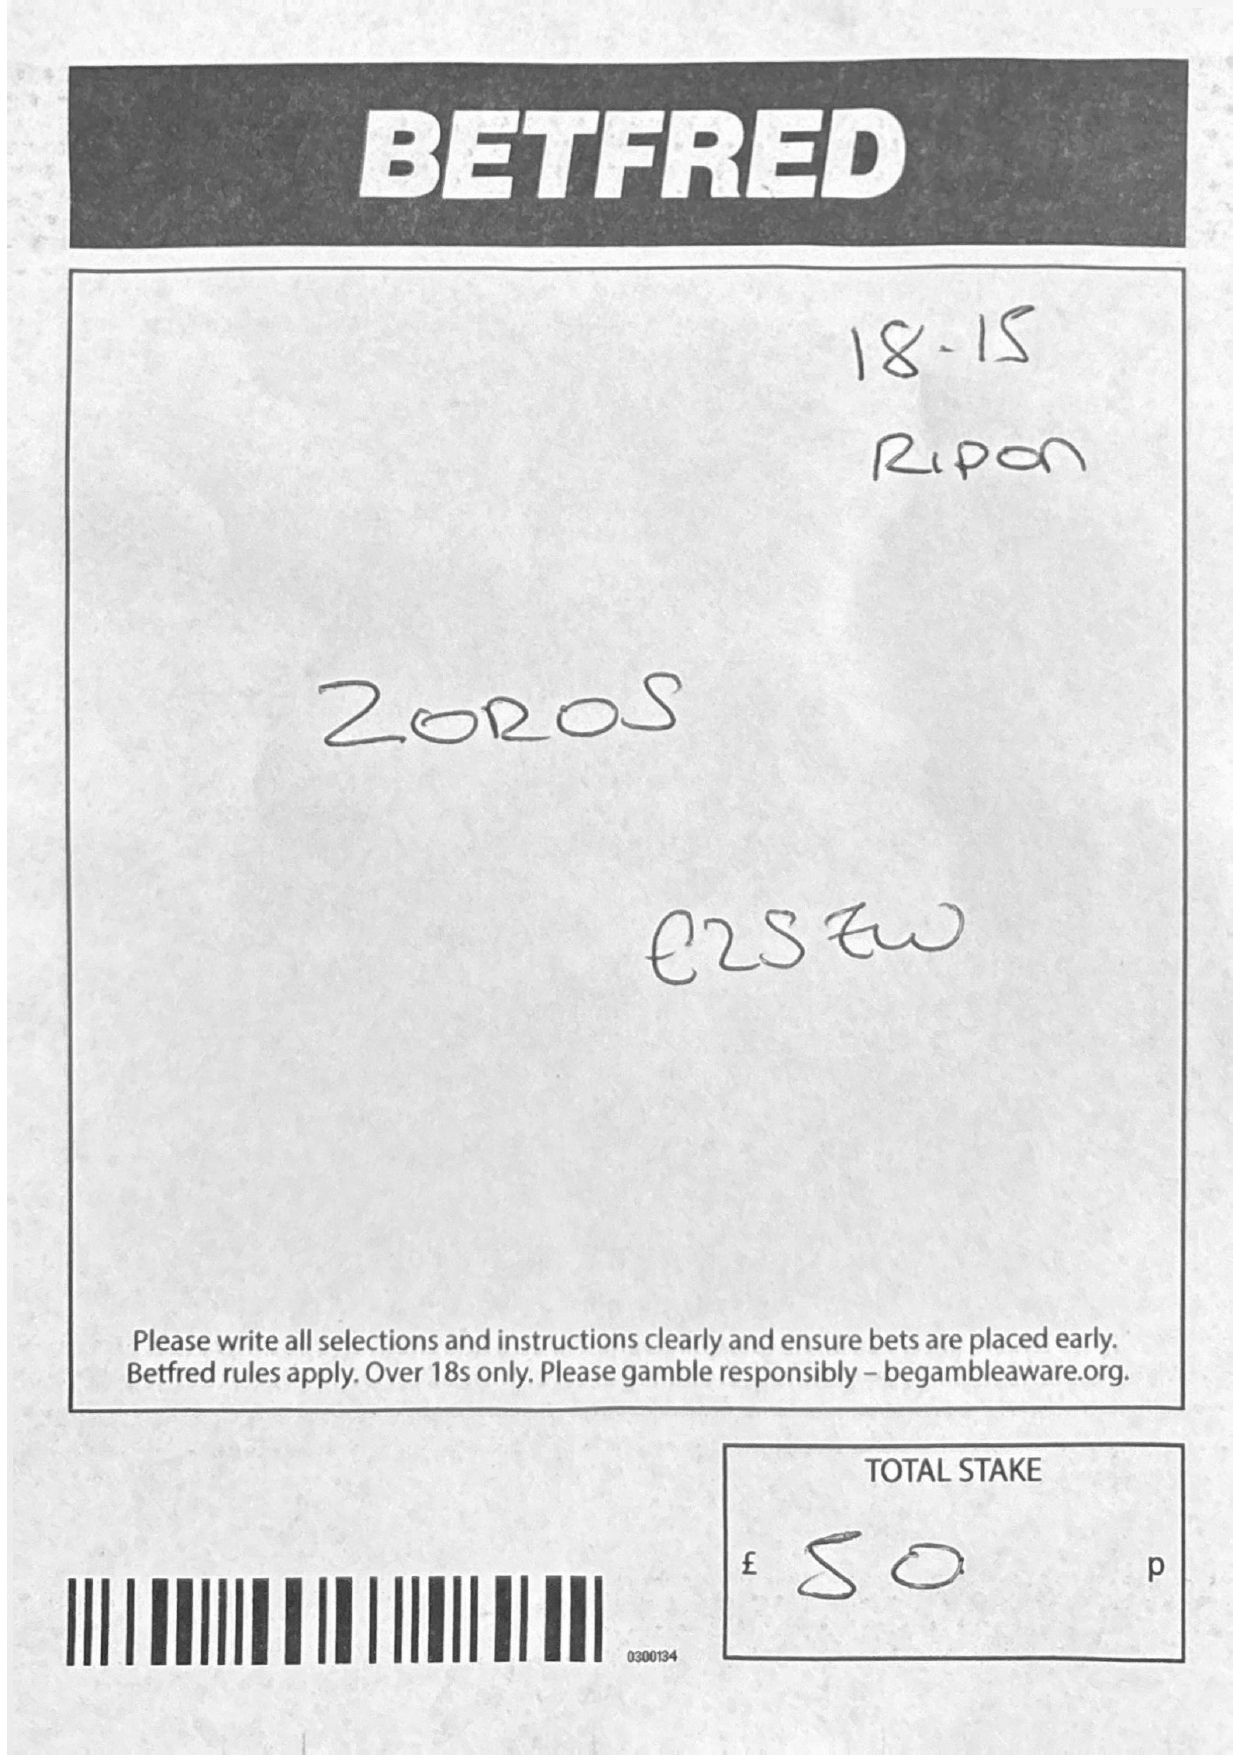 BETFRED
18-15
Ripon
ZOROS
£25 EW
Please write all selections and instructions clearly and ensure bets are placed early.
Betfred rules apply. Over 18s only. Please gamble responsibly – begambleaware.org.
TOTAL STAKE
£ 50 p
0300134